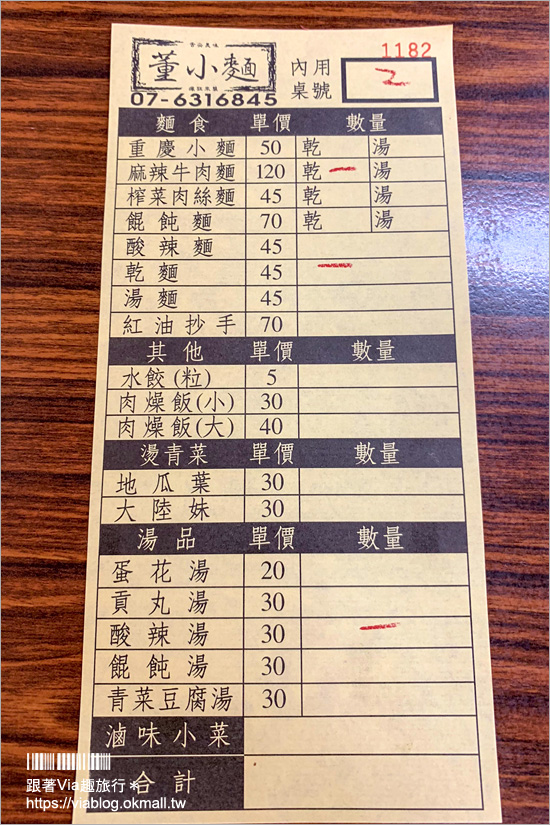 董小麵
07-6316845
1182
內用
桌號
2
麵食 單價 數量
重慶小麵 50 乾 湯
麻辣牛肉麵 120 乾 一 湯
榨菜肉絲麵 45 乾 湯
餛飩麵 70 乾 湯
酸辣麵 45
乾麵 45 一
湯麵 45
紅油抄手 70
其他 單價 數量
水餃(粒) 5
肉燥飯(小) 30
肉燥飯(大) 40
燙青菜 單價 數量
地瓜葉 30
大陸妹 30
湯品 單價 數量
蛋花湯 20
貢丸湯 30
酸辣湯 30 一
餛飩湯 30
青菜豆腐湯 30
滷味小菜
合計
跟著Via趣旅行*
https://viablog.okmall.tw